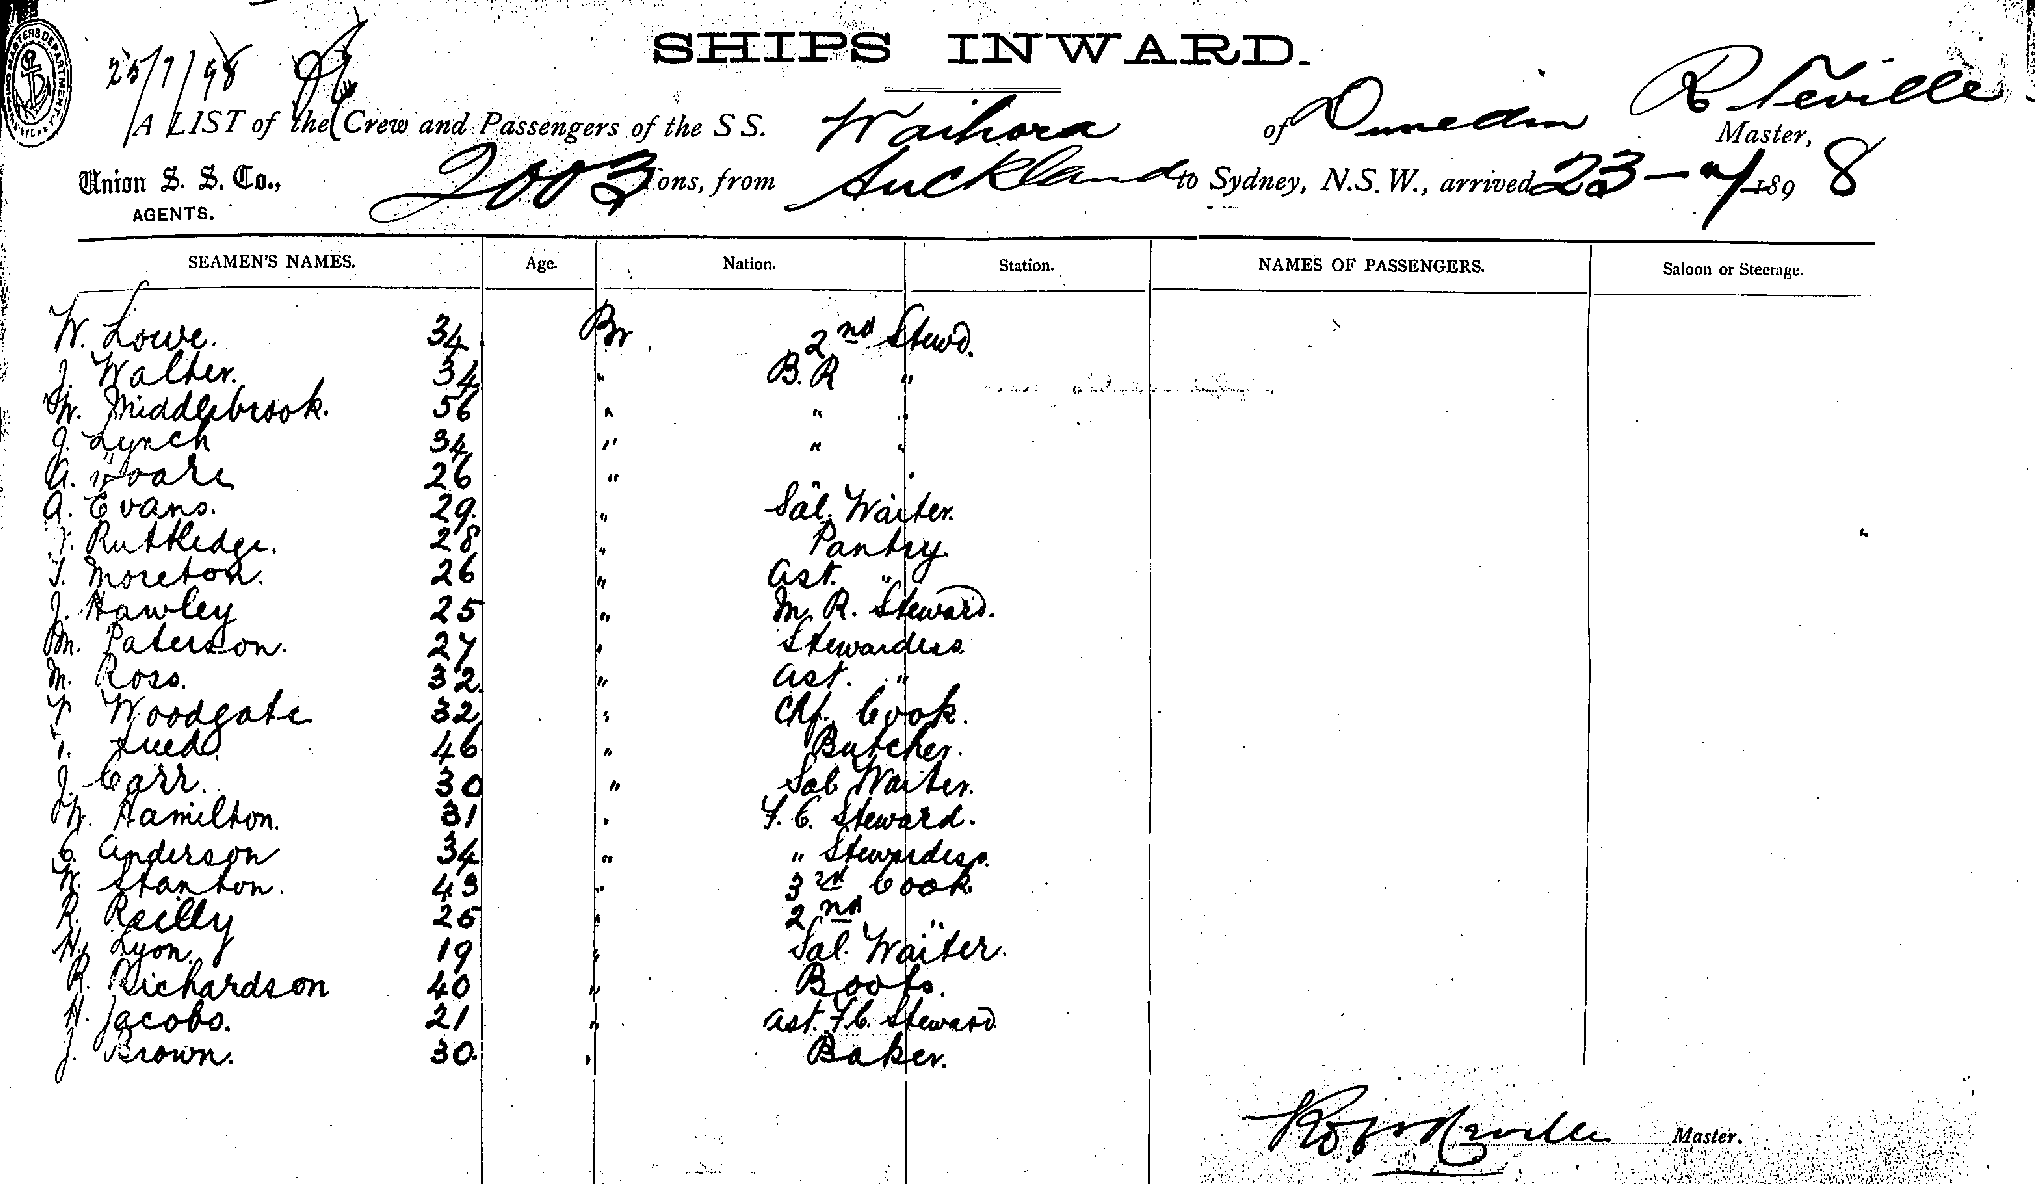 25/7/98
SHIPS INWARD.
A LIST of the Crew and Passengers of the S S. Waihora of Dunedin R Neville Master,
Union S. S. Co., AGENTS. 2003 Tons, from Auckland to Sydney, N.S.W., arrived 23 - 7 - 189 8
SEAMEN'S NAMES. Age. Nation. Station. NAMES OF PASSENGERS. Saloon or Steerage.
W. Lowe. 34 Br 2nd Stewd.
J. Walter. 34 " B. R "
W. Middlebrook. 56 " " "
J. Lynch 34 " " "
A. 26 " "
A. Evans. 29. " Sal. Waiter.
Rutledge. 28 " Pantry
T. Moreton. 26 " Ast. "
J. Hawley 25 " M. R. Steward.
M. Paterson. 27 " Stewardess
M. Ross. 32 " Ast. "
Woodgate 32 " Chf. Cook.
46 " Butcher.
J. Carr. 30 " Sal Waiter.
W. Hamilton. 31 " F. C. Steward.
C. Anderson 34 " " Stewardess.
W. Stanton. 43 " 3rd Cook
R. Reilly 25 " 2nd "
H. Lyon. 19 " Sal. Waiter.
R. Richardson 40 " Boots.
H. Jacobs. 21 " Ast. F.C. Steward
J. Brown. 30. " Baker.
Neville Master.